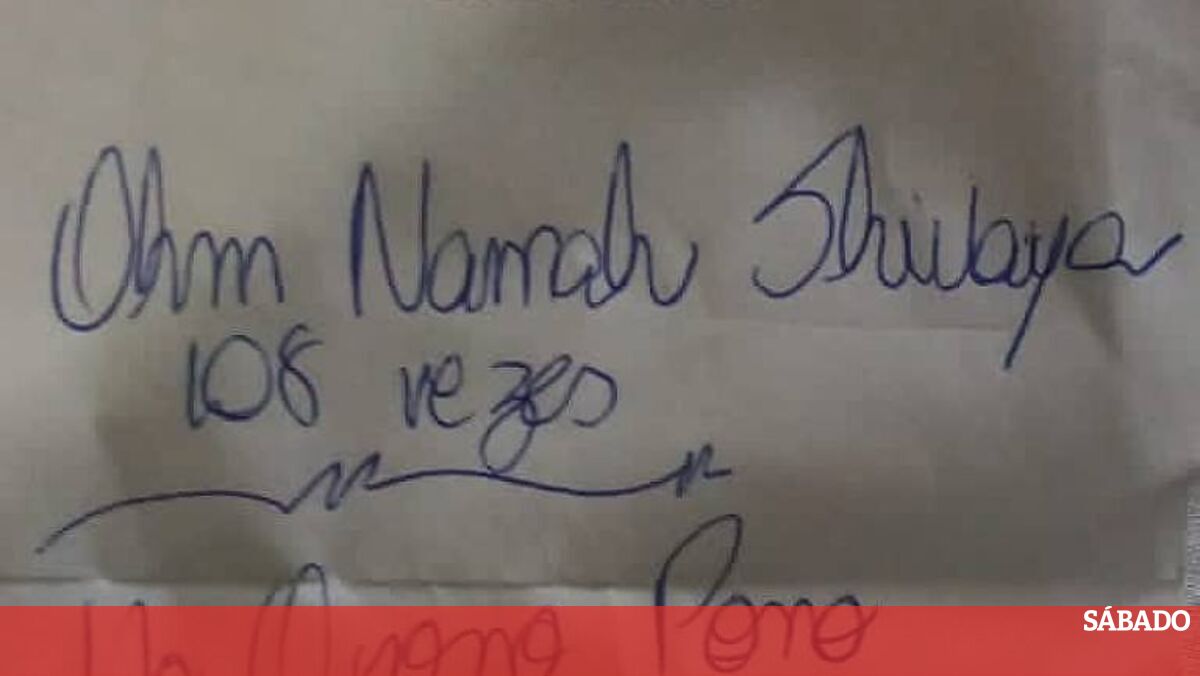 Ohm Namah Shivaya
108 vezes
Pono
SÁBADO